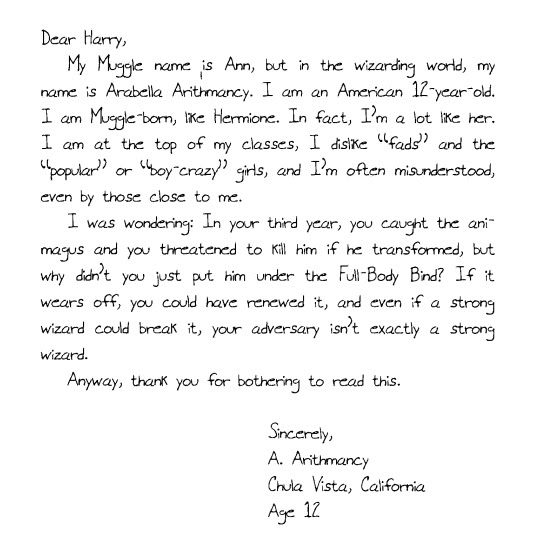 Dear Harry,
My Muggle name is Ann, but in the wizarding world, my
name is Arabella Arithmancy. I am an American 12-year-old.
I am Muggle-born, like Hermione. In fact, I'm a lot like her.
I am at the top of my classes, I dislike "fads" and the
"popular" or "boy-crazy" girls, and I'm often misunderstood,
even by those close to me.
I was wondering: In your third year, you caught the ani-
magus and you threatened to kill him if he transformed, but
why didn't you just put him under the Full-Body Bind? If it
wears off, you could have renewed it, and even if a strong
wizard could break it, your adversary isn't exactly a strong
wizard.
Anyway, thank you for bothering to read this.
Sincerely,
A. Arithmancy
Chula Vista, California
Age 12